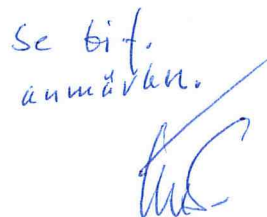 Se bif.
anmärkn.